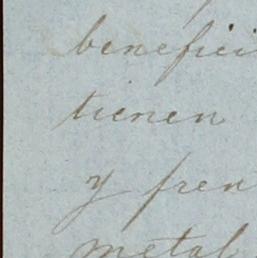 benefici
tienen
y fren
metal